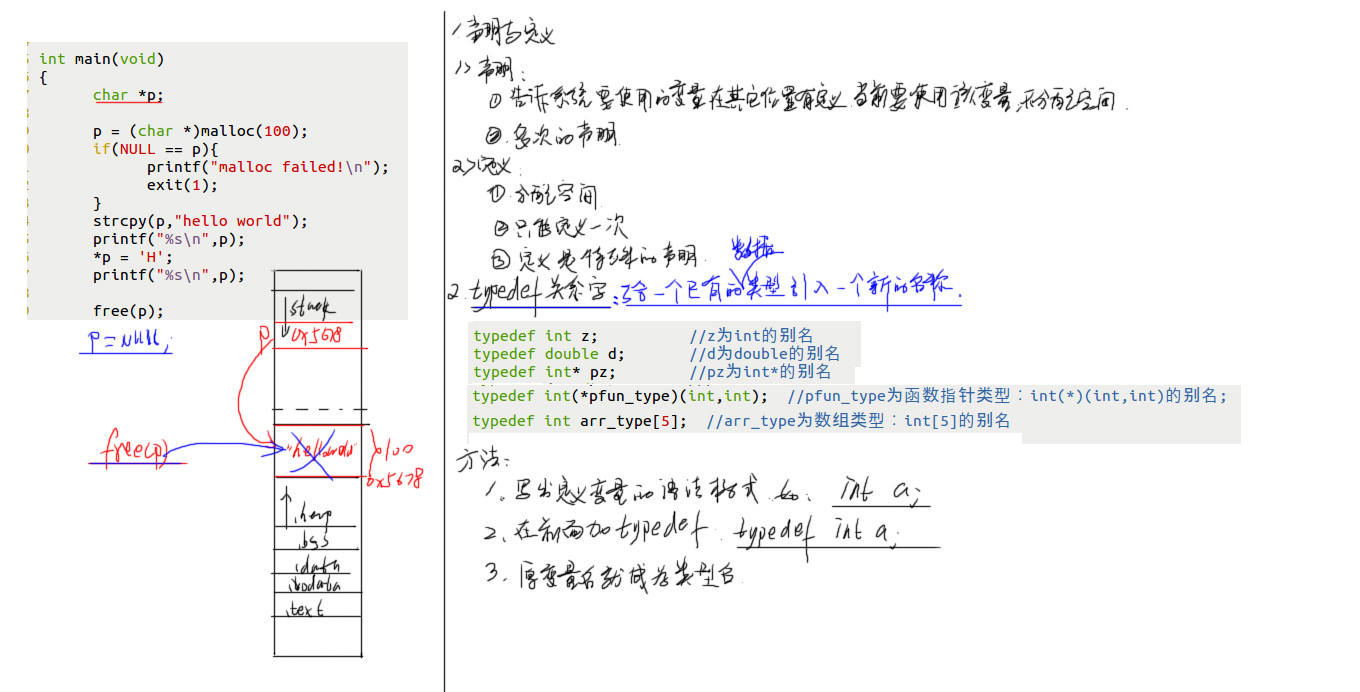 int main(void)
{
char *p;
p = (char *)malloc(100);
if(NULL == p){
printf("malloc failed!\n");
exit(1);
}
strcpy(p,"hello world");
printf("%s\n",p);
*p = 'H';
printf("%s\n",p);
free(p);
p=NULL;
stack
p 0x5678
free(p)
100
0x5678
.heap
.bss
.data
.rodata
.text
1、声明与定义
1>声明：
① 告诉系统要使用的变量在其它位置有定义，当前要使用该变量，不分配空间.
② 多次的声明.
2>定义：
① 分配空间
② 只能定义一次
③ 定义是特殊的声明.
数据
2. typedef关键字：给一个已有的类型引入一个新的名称.
typedef int z; //z为int的别名
typedef double d; //d为double的别名
typedef int* pz; //pz为int*的别名
typedef int(*pfun_type)(int,int); //pfun_type为函数指针类型：int(*)(int,int)的别名;
typedef int arr_type[5]; //arr_type为数组类型：int[5]的别名
方法：
1、写出定义变量的语法格式 如： int a;
2、在前面加typedef. typedef int a;
3. 原变量名就成为类型名